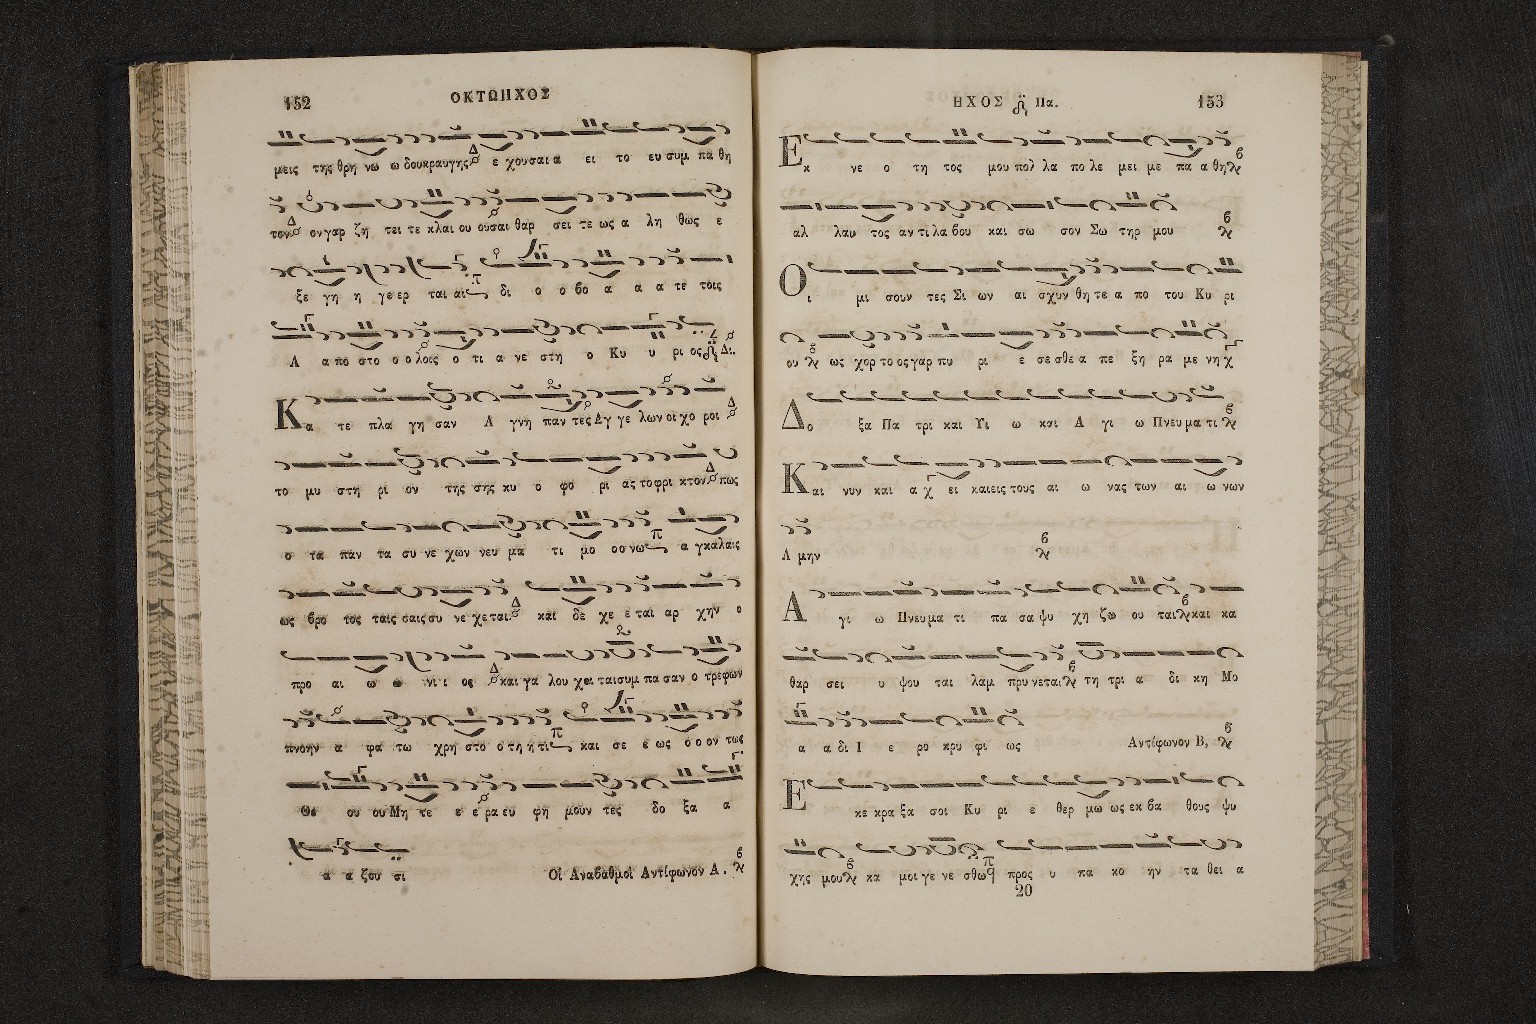 152
ΟΚΤΩΗΧΟΣ
μεις της θρη νω ω δου κραυγης ε χουσαι α ει το ευ συμ πα θη
τον ον γαρ ζη τει τε κλαι ου ουσαι θαρ σει τε ως α λη θως ε
ξε γη η γε ερ ται αι δι ο ο βο α α α τε τοις
Α α πο στο ο ο λοις ο τι α νε στη ο Κυ υ ρι ος Δι.
Κα τε πλα γη σαν Α γνη παν τες Αγ γε λων οι χο ροι
το μυ στη ρι ον της σης κυ ο φο ρι ας το φρι κτον πως
ο τα παν τα συ νε χων νευ μα τι μο ο ο νω α γκαλαις
ως βρο τος ταις σαις συ νε χεται και δε χε ε ται αρ χην ο
προ αι ω ω νι ι ος και γα λου χει ται συμ πα σαν ο τρεφων
πνοην α φα τω χρη στο ο τη η τι και σε ε ως ο ο ον τως
Θε ου ου Μη τε ε ε ρα ευ φη μουν τες δο ξα α
α α ζου σι Οἱ Αναβαθμοὶ Αντίφωνον Α.
ΗΧΟΣ Πα.
153
Εκ νε ο τη τος μου πολ λα πο λε μει με πα α θη
αλ λαυ τος αν τι λα βου και σω σον Σω τηρ μου
Οι μι σουν τες Σι ων αι σχυν θη τε α πο του Κυ ρι
ου ως χορ το ος γαρ πυ ρι ε σε σθε α πε ξη ρα με νη
Δο ξα Πα τρι και Υι ω και Α γι ω Πνευ μα τι
Και νυν και α ει και εις τους αι ω νας των αι ω νων
Α μην
Α γι ω Πνευ μα τι πα σα ψυ χη ζω ου ται και κα
θαρ σει υ ψου ται λαμ πρυ νεται τη τρι α δι κη Μο
α α δι Ι ε ρο κρυ φι ως Αντίφωνον Β,
Ε κε κρα ξα σοι Κυ ρι ε θερ μω ως εκ βα θους ψυ
χης μου κα μοι γε νε σθω προς υ πα κο ην τα θει α
20